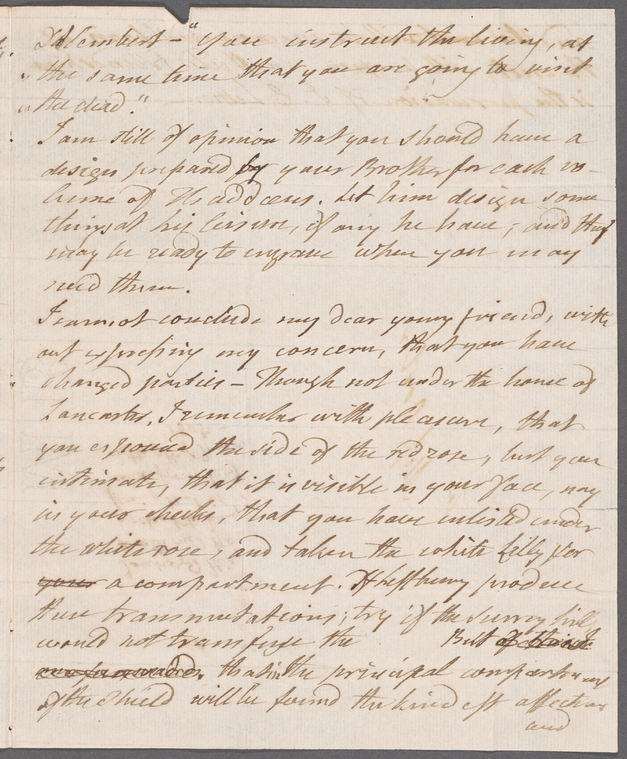 "You instruct the living, at
the same time that you are going to visit
the dead."
I am still of opinion that you should have a
design prepared by your Brother for each vo-
lume of
Let him design some
things at his leisure, if any he have, and they
may be ready to engrave when you may
need them.
I cannot conclude my dear young friend, with
out expressing my concern, that you have
changed parties - Though not under the house of
Lancaster, I remember with pleasure, that
you espoused the side of the red rose, but you
intimate, that it is visible in your face, nay
in your cheeks, that you have enlisted under
the white rose, and taken the white lilly for
your a compartment. If
produce
these transmutations; try if the Surrey hill
would not transfuse the But of
that in the principal compartment
of the shield will be found the kindest affections
and